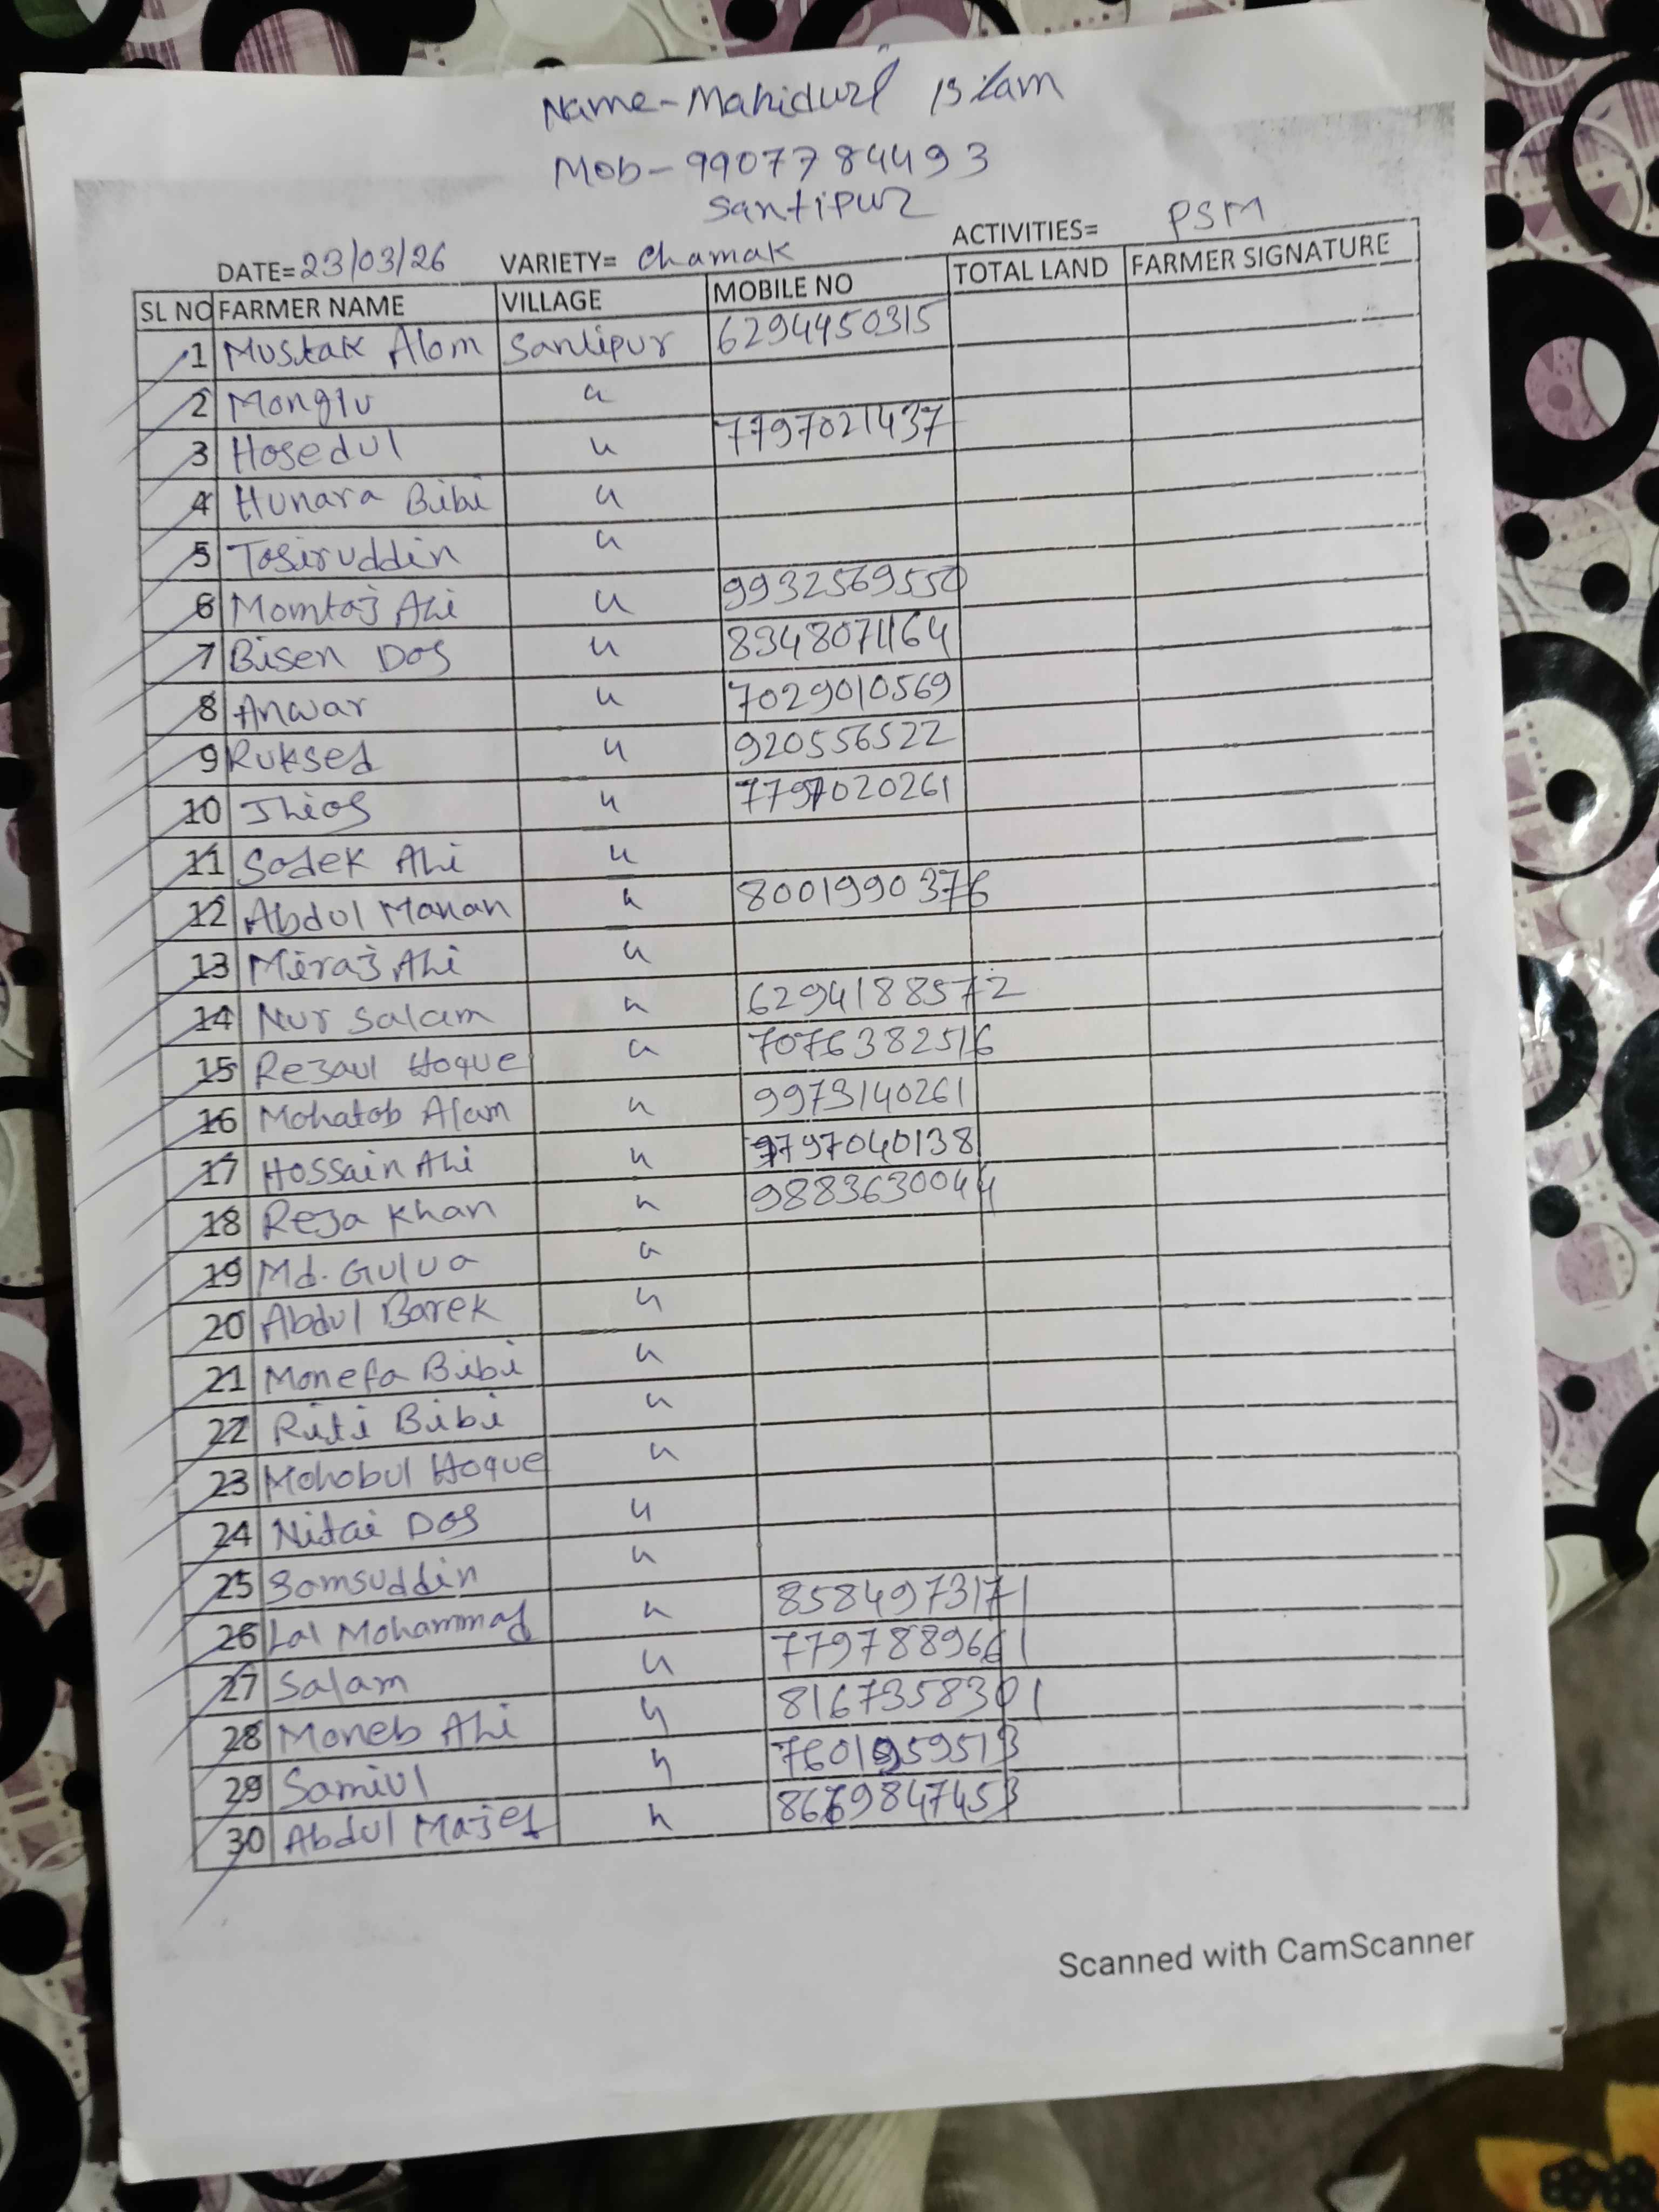 Name-Mahidurl Islam
Mob-9907784493
Santipur
DATE=23/03/26 VARIETY= Chamak ACTIVITIES= PSM
SL NO FARMER NAME VILLAGE MOBILE NO TOTAL LAND FARMER SIGNATURE
1 Mustak Alom Santipur 6294450315
2 Monglu "
3 Hosedul " 7797021437
4 Hunara Bibi "
5 Tosiruddin "
6 Momtaj Ali " 9932569550
7 Bisen Dos " 8348071164
8 Anwar " 7029010569
9 Ruksed " 920556522
10 Ilios " 7797020261
11 Sodek Ali "
12 Abdul Manan " 8001990376
13 Miraj Ali "
14 Nur Salam " 6294188572
15 Rezaul Hoque " 7076382516
16 Mohatob Alam " 9973140261
17 Hossain Ali " 9797040138
18 Reza Khan " 9883630044
19 Md. Gulua "
20 Abdul Barek "
21 Monefa Bibi "
22 Riti Bibi "
23 Mohobul Hoque "
24 Nitai Dos "
25 Somsuddin "
26 Lal Mohammad " 8584973171
27 Salam " 7797889661
28 Moneb Ali " 8167358301
29 Samiul "
30 Abdul Majed "
Scanned with CamScanner